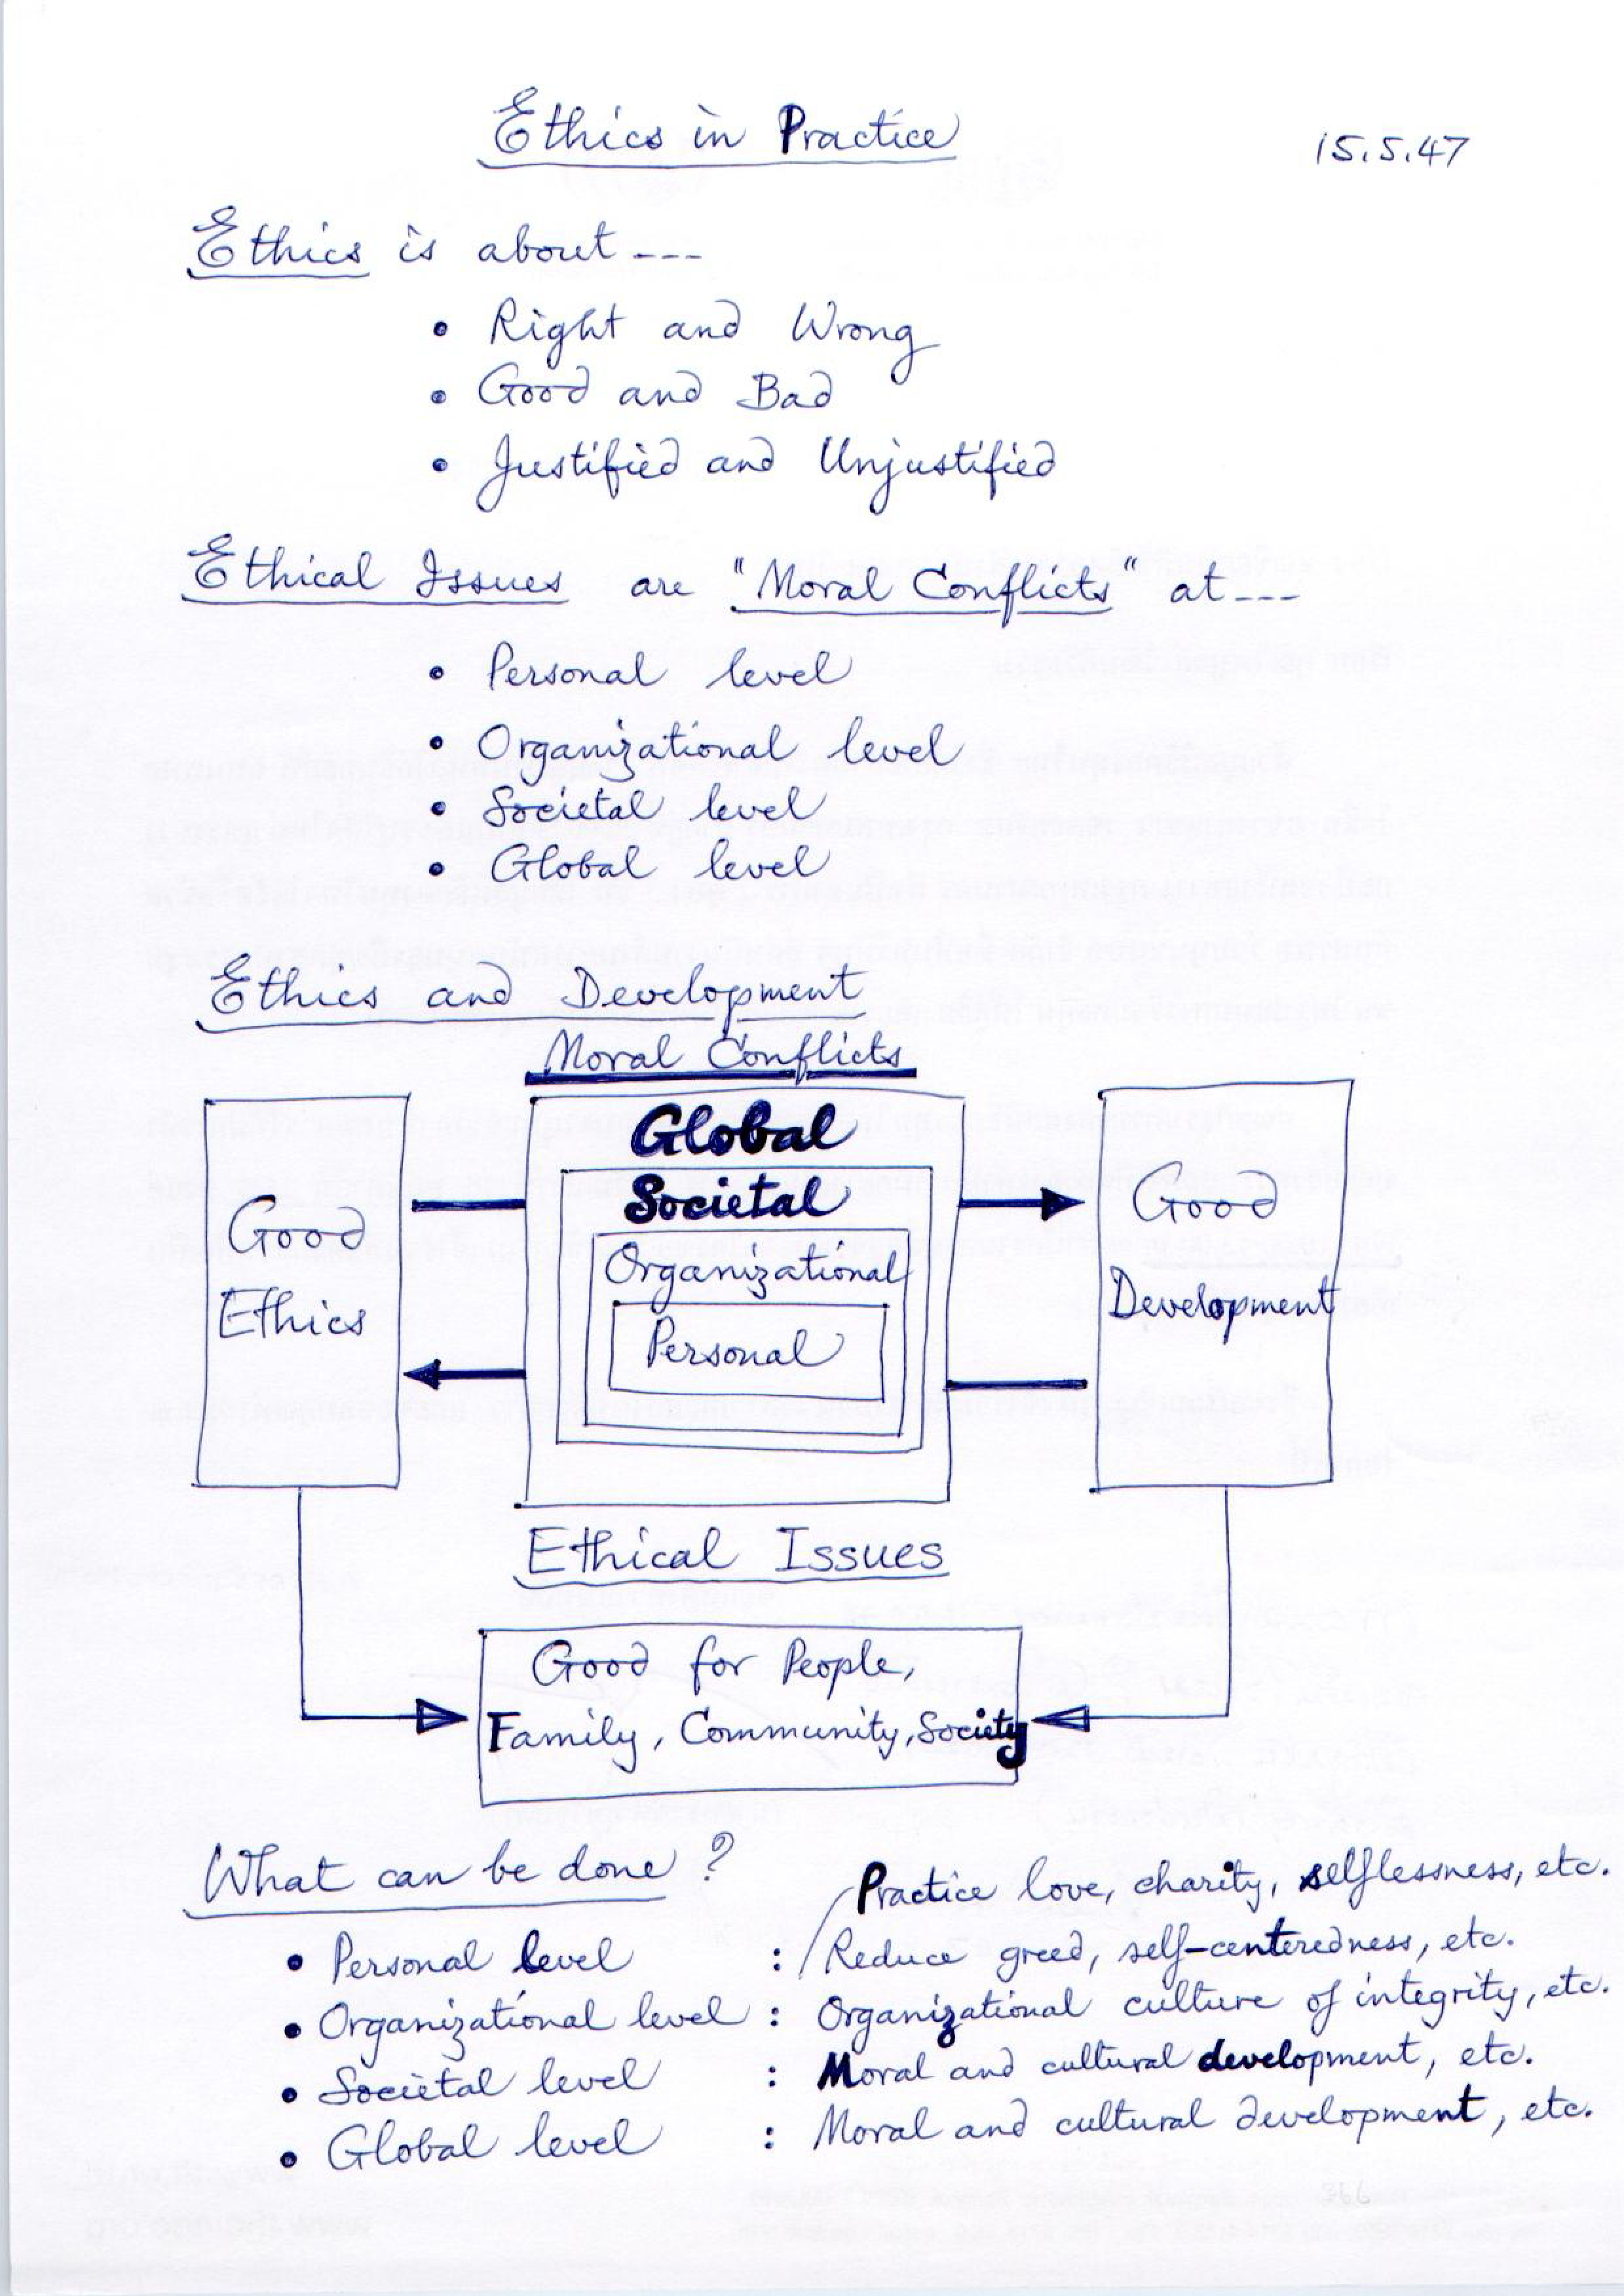 Ethics in Practice
15.5.47
Ethics is about ---
• Right and Wrong
• Good and Bad
• Justified and Unjustified
Ethical Issues are "Moral Conflicts" at ---
• Personal level
• Organizational level
• Societal level
• Global level
Ethics and Development
Moral Conflicts
Global
Societal
Organizational
Personal
Good
Ethics
Good
Development
Ethical Issues
Good for People,
Family, Community, Society
What can be done?
Practice love, charity, selflessness, etc.
• Personal level : Reduce greed, self-centeredness, etc.
• Organizational level : Organizational culture of integrity, etc.
• Societal level : Moral and cultural development, etc.
• Global level : Moral and cultural development, etc.